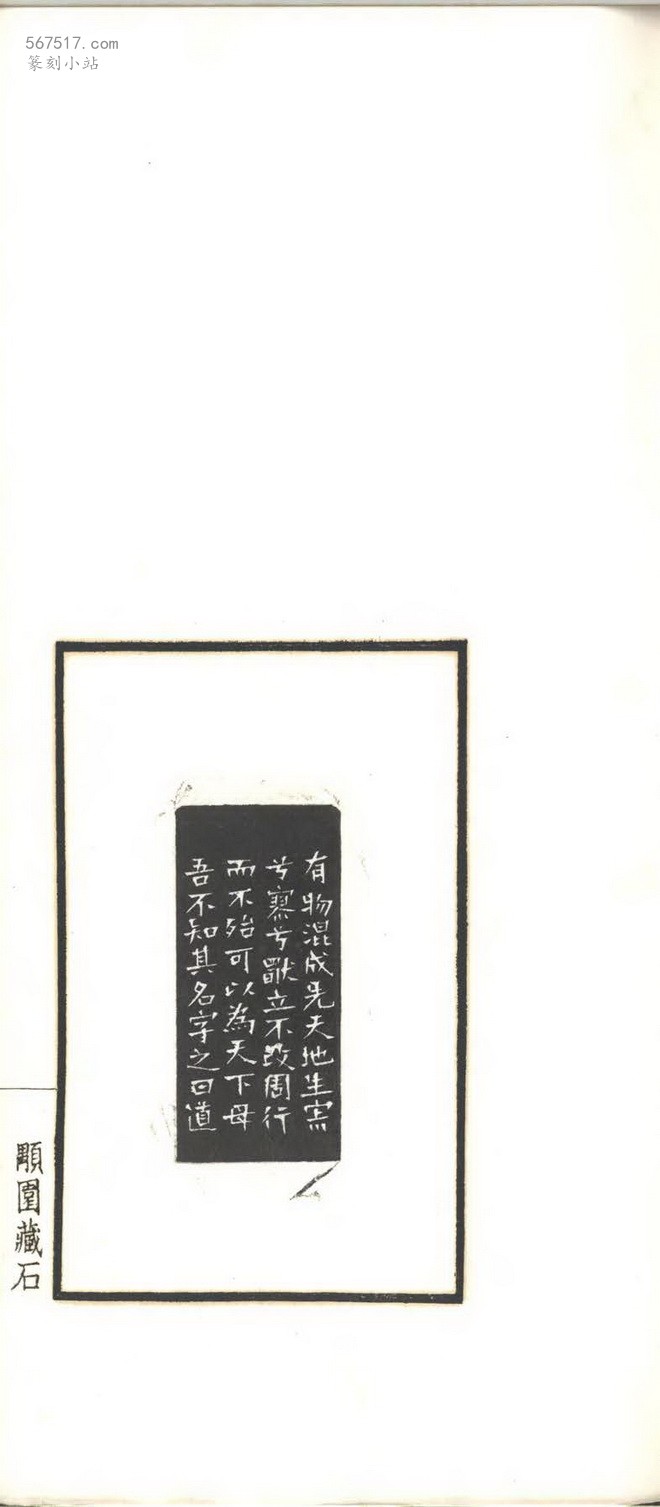 567517.com
篆刻小站
有物混成先天地生寂
兮寥兮獨立不改周行
而不殆可以為天下母
吾不知其名字之曰道
園藏石